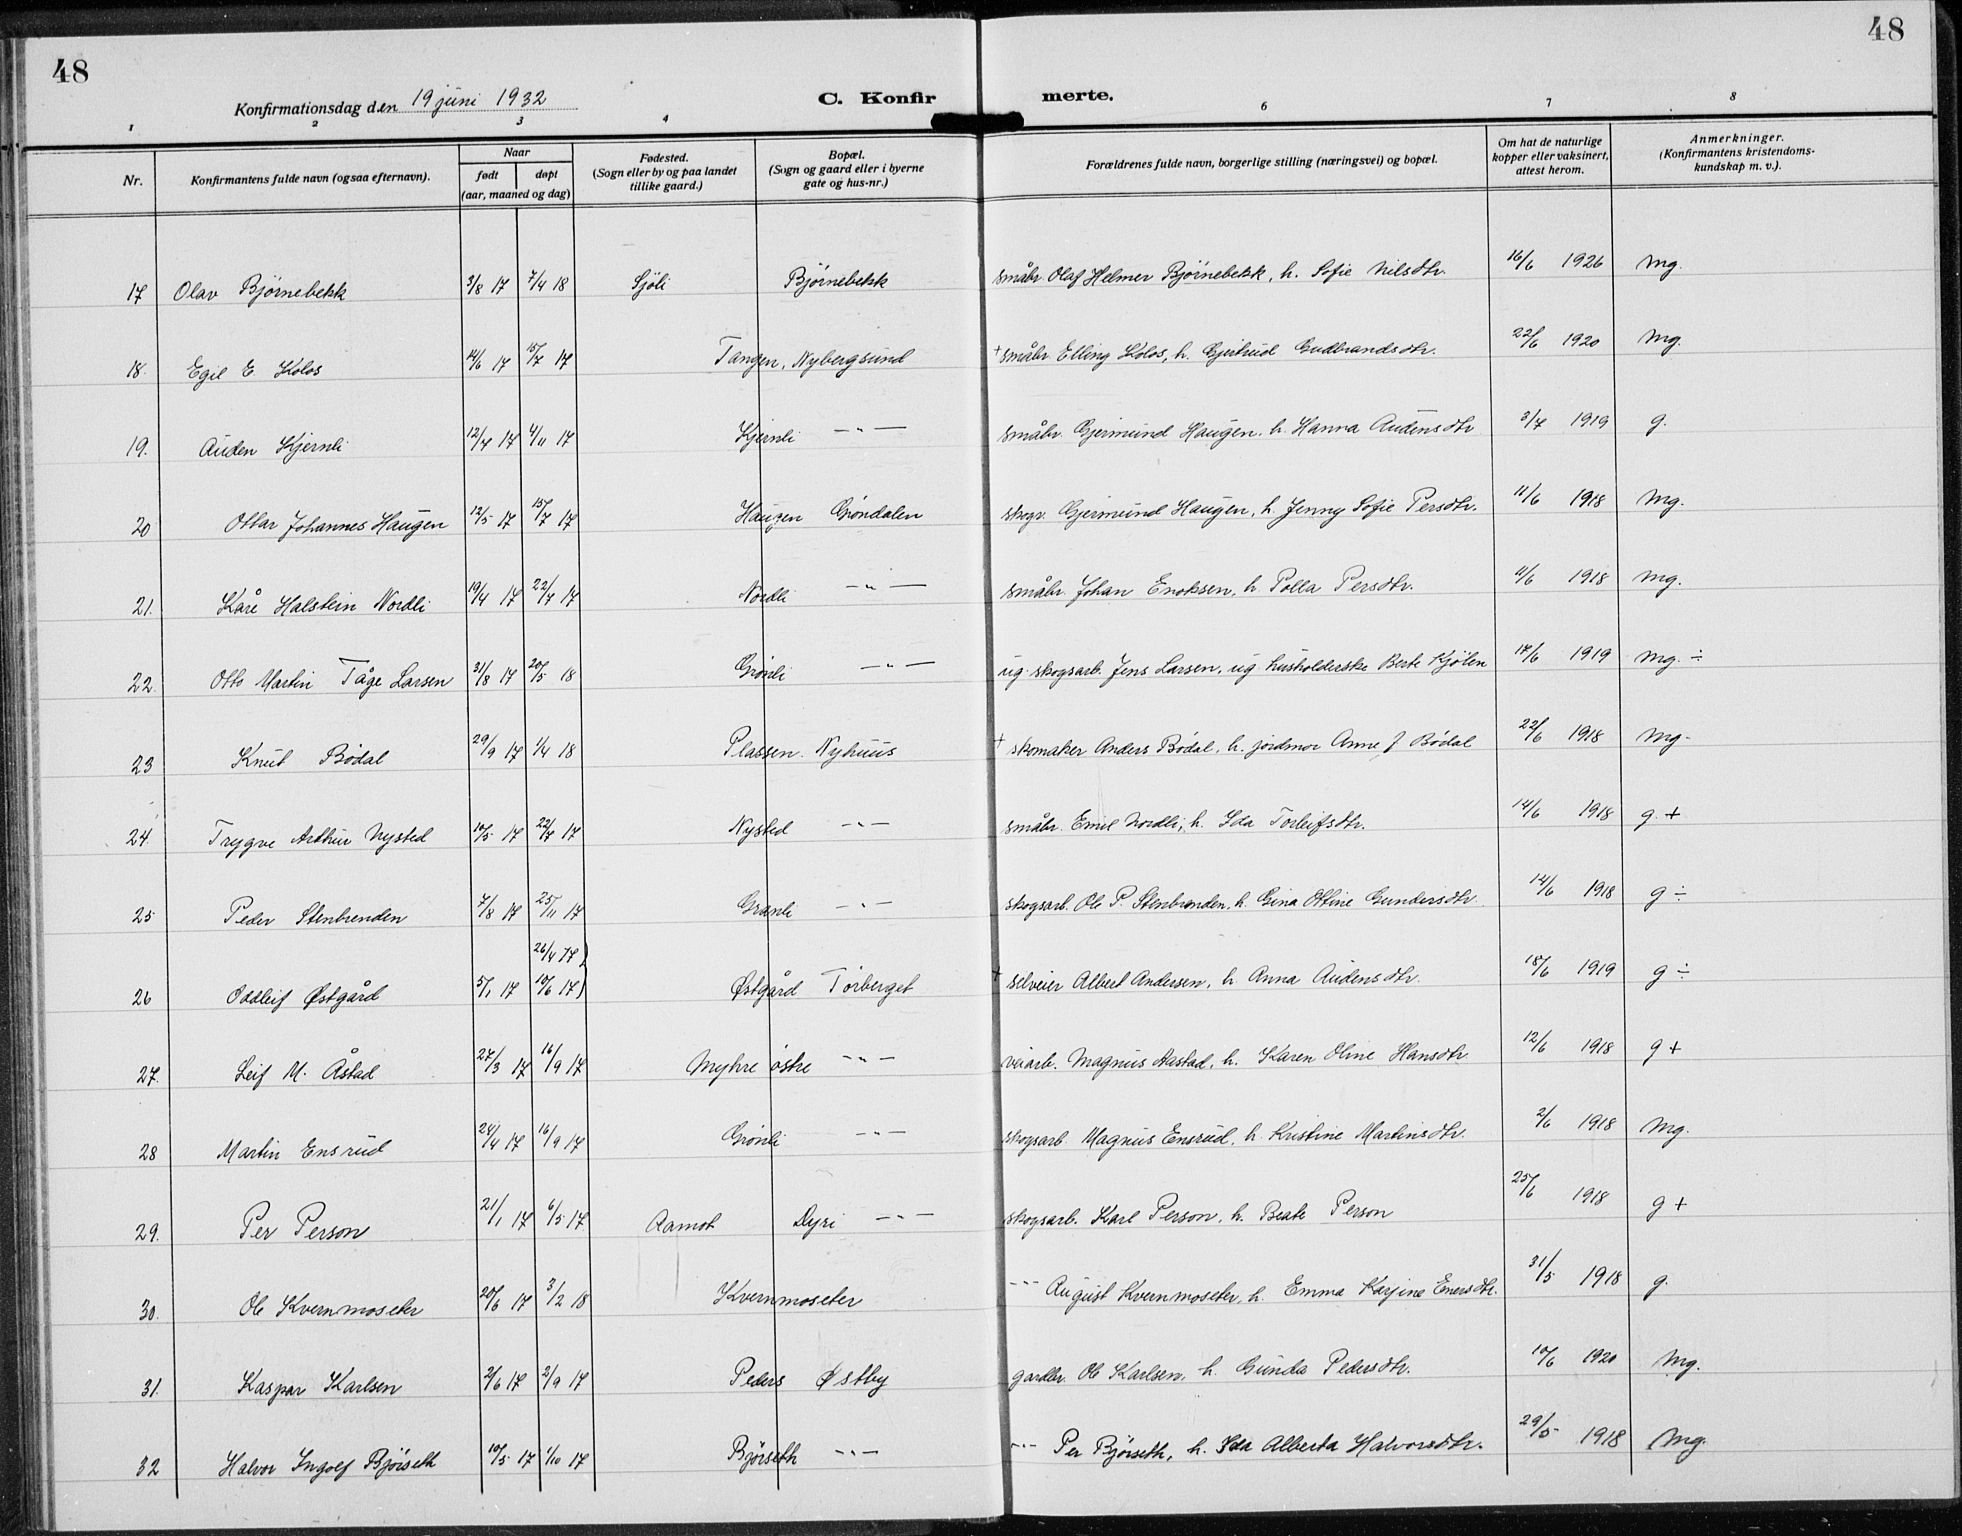 48
48
Konfirmationsdag den 19 juni 1932
C. Konfir
merte.
1 2 3 4 6 7 8
Nr. Konfirmantens fulde navn (ogsaa efternavn). Naar født døpt (aar, maaned og dag) Fødested. (Sogn eller by og paa landet tillike gaard.) Bopæl. (Sogn og gaard eller i byerne gate og hus-nr.) Forældrenes fulde navn, borgerlige stilling (næringsvei) og bopæl. Om hat de naturlige kopper eller vaksinert, attest herom. Anmerkninger. (Konfirmantens kristendoms-kundskap m. v.).
17 Olav Bjørnebekk 3/8 17 7/4 18 Sjöli Bjørnebekk småbr Olaf Helmer Bjørnebekk, h. Sofie Nilsdtr. 16/6 1926 Mg.
18. Egil E. Kolos 14/6 17 15/7 17 Tangen, Nybergsund + småbr Elling Kolos, h. Gjertrud Gudbrandsdtr. 22/6 1920 Mg.
19. Auden Kjernli 12/7 17 4/11 17 Kjernli —"— småbr. Gjermund Haugen. h. Hanna Audensdtr 3/7 1919 g.
20 Ottar Johannes Haugen 12/5 17 15/7 17 Haugen Grøndalen skogv. Gjermund Haugen, h. Jenny Sofie Persdtr. 11/6 1918 Mg.
21. Kåre Halstein Nordli 19/4 17 22/7 17 Nordli —"— småbr. Johan Enoksen, h. Polla Persdtr. 11/6 1918 Mg.
22. Otto Martin Tåge Larsen 31/8 17 20/5 18 Grønli —"— ug. skogsarb. Jens Larsen, ug husholderske Berte Kjølen 17/6 1919 Mg. ÷
23 Knut Bødal 29/9 17 1/4 18 Plassen. Nyhuus + skomaker Anders Bødal, h. jordmor Anne J Bødal 22/6 1918 Mg.
24. Trygve Arthur Nysted 10/5 17 22/7 17 Nysted —"— småbr. Emil Nordli, h. Ida Torleifsdtr. 14/6 1918 g. +
25 Peder Stenbrenden 7/8 17 25/11 17 Granli —"— skogsarb. Ole P. Stenbrenden, h. Gina Ottine Gundersdtr. 14/6 1918 g ÷
26/4 17)
26 Oddleif Østgård 5/1 17 10/6 17) Østgård Törberget + selveier Albert Andersen, h Anna Audensdtr. 18/6 1919 g ÷
27. Leif M. Åstad 27/3 17 16/9 17 Myhre östre —"— veiarb. Magnus Aastad, h. Karen Oline Hansdtr 12/6 1918 g +
28 Martin Ensrud 24/4 17 16/9 17 Grönli —"— skogsarb. Magnus Ensrud, h. Kristine Martinsdtr. 2/6 1918 Mg.
29. Per Person 21/1 17 6/5 17 Aamot Dyri —"— skogsarb. Karl Person, h. Beate Person 25/6 1918 g +
30. Ole Kvernmoseter 20/6 17 3/2 18 Kvernmoseter —"— August Kvernmoseter, h. Emma Karjine Enersdtr. 31/5 1918 g.
31. Kaspar Karlsen 2/6 17 2/9 17 Peders Østby gardbr. Ole Karlsen, h. Gunda Pedersdtr. 10/6 1920 Mg.
32 Halvor Ingolf Bjørseth 10/5 17 1/10 17 Bjørseth —"— —"— Per Bjørseth, h. Ida Alberta Halvorsdtr. 29/5 1918 Mg.